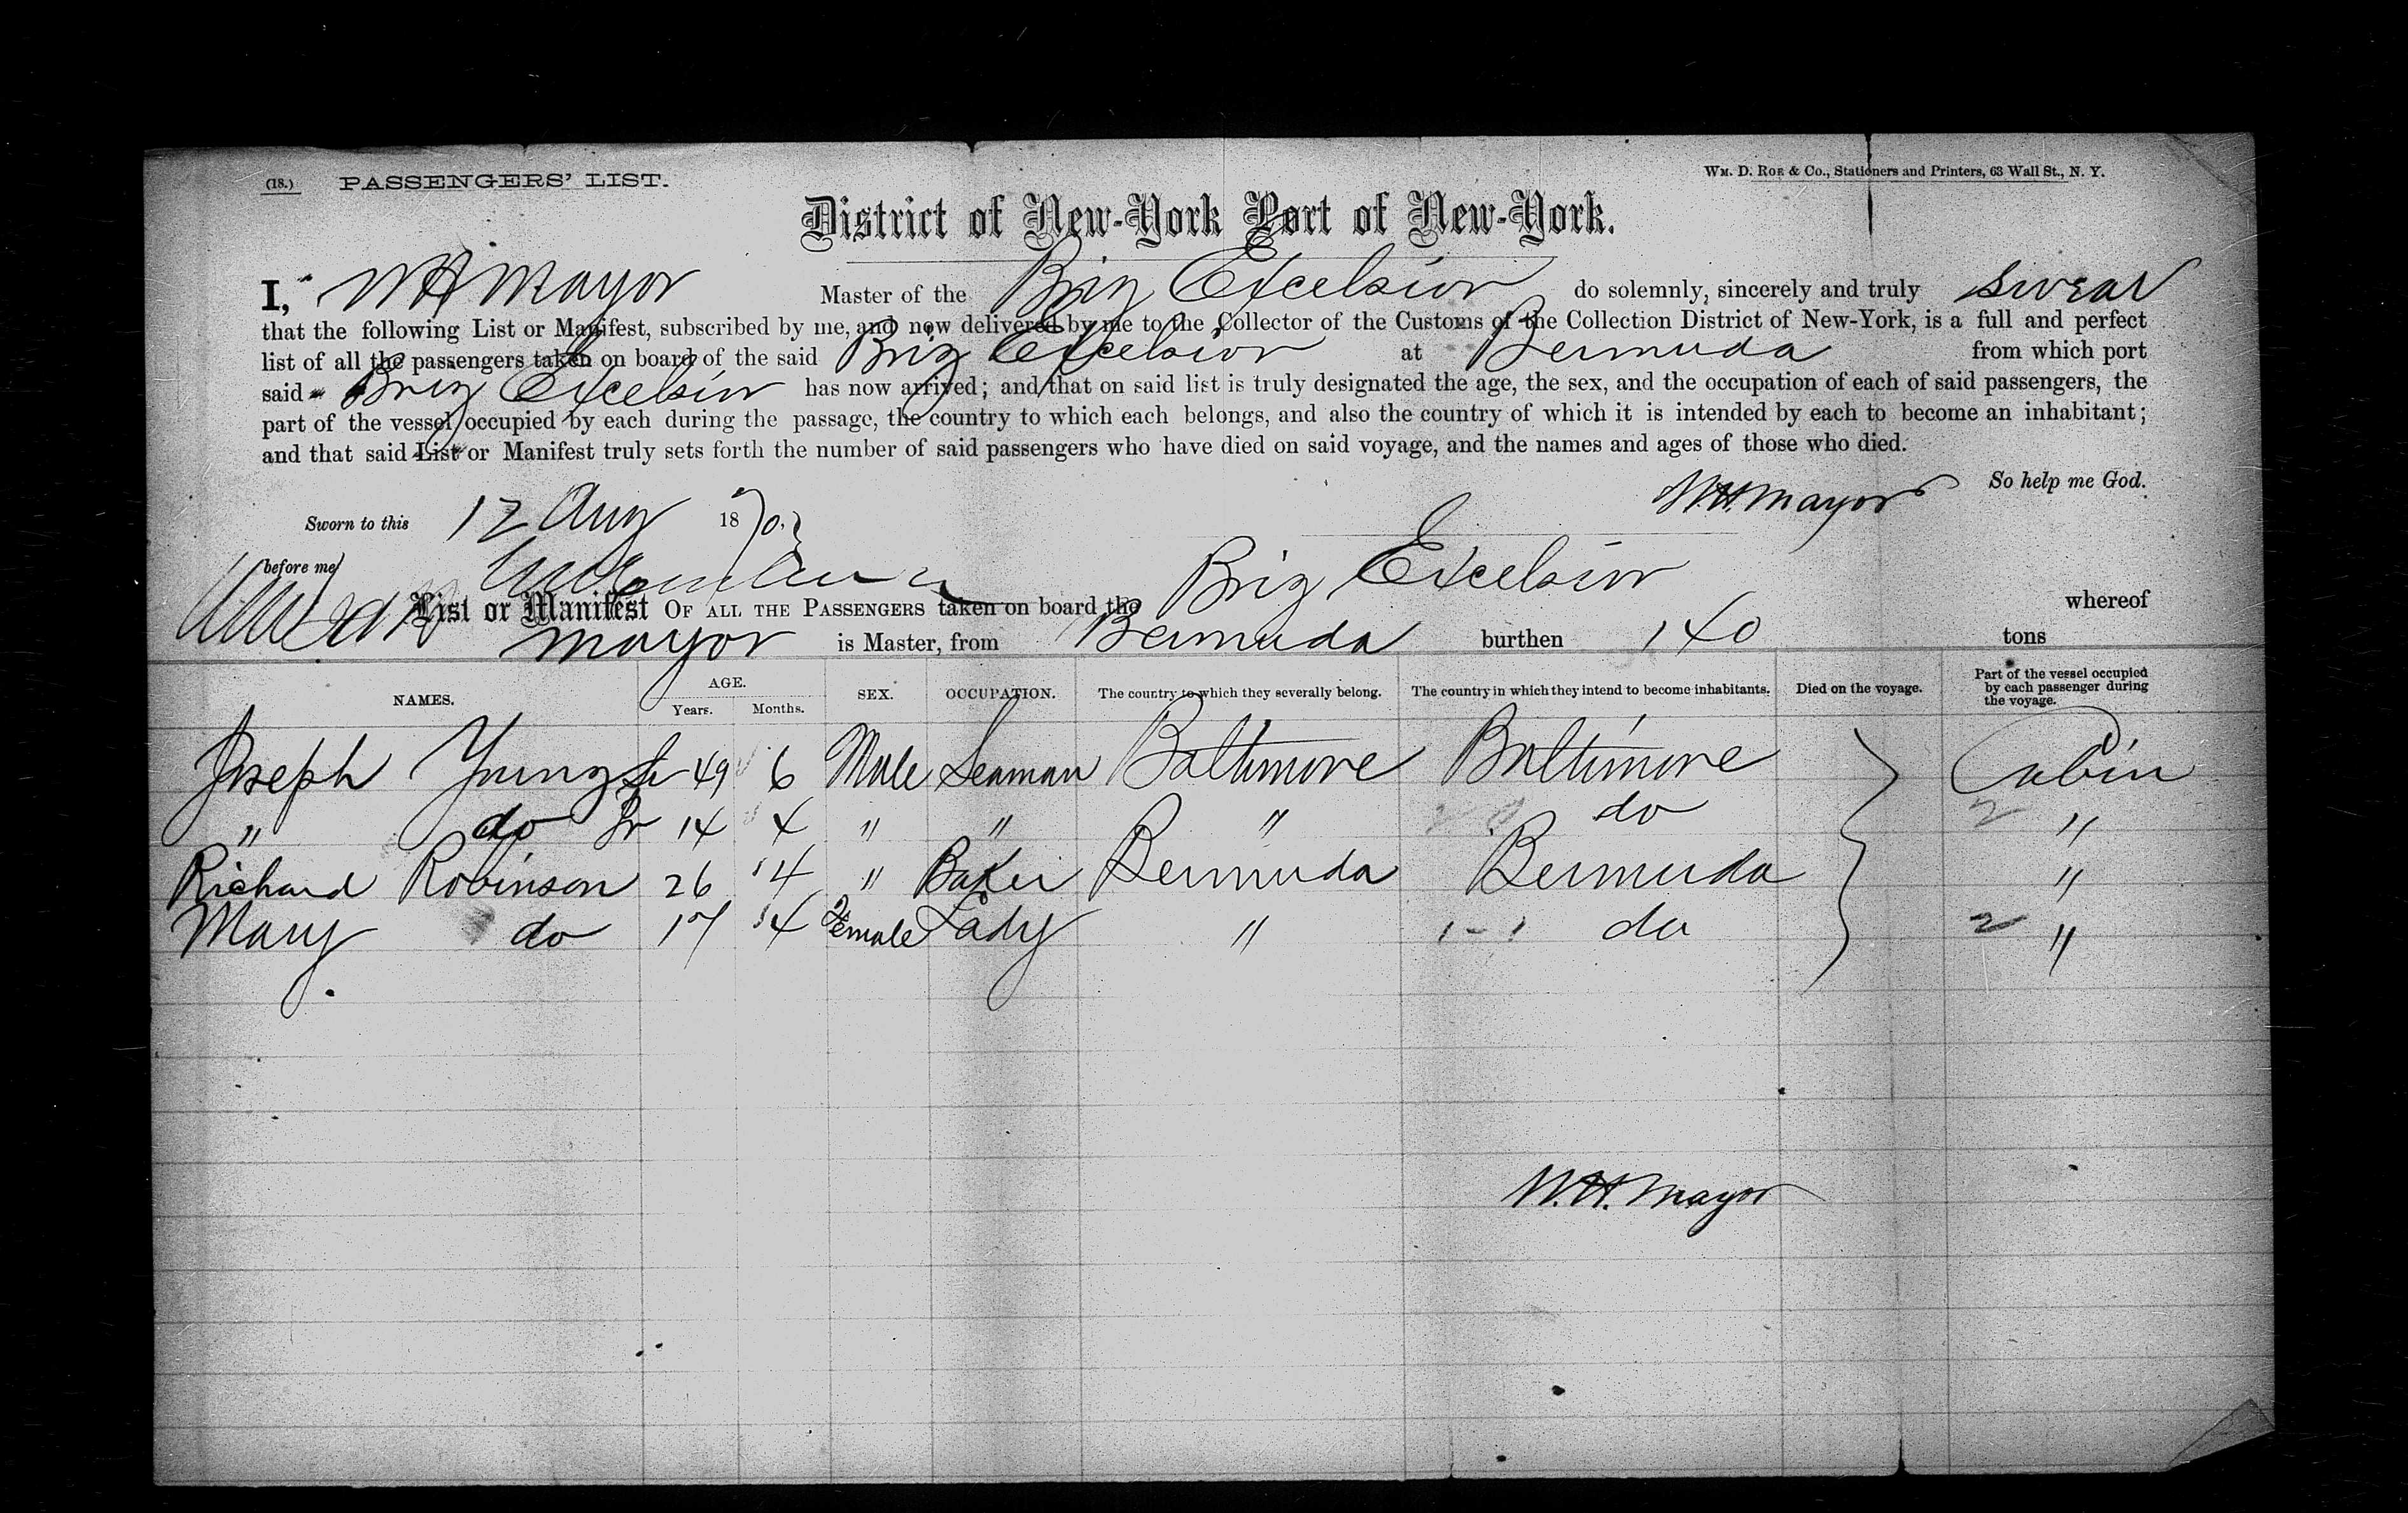 (18.) PASSENGERS' LIST.
Wm. D. Roe & Co., Stationers and Printers, 63 Wall St., N. Y.
District of New-York Port of New-York.
I, W H Mayor Master of the Brig Excelsior do solemnly, sincerely and truly swear
that the following List or Manifest, subscribed by me, and now delivered by me to the Collector of the Customs of the Collection District of New-York, is a full and perfect
list of all the passengers taken on board of the said Brig Excelsior at Bermuda from which port
said Brig Excelsior has now arrived; and that on said list is truly designated the age, the sex, and the occupation of each of said passengers, the
part of the vessel occupied by each during the passage, the country to which each belongs, and also the country of which it is intended by each to become an inhabitant;
and that said List or Manifest truly sets forth the number of said passengers who have died on said voyage, and the names and ages of those who died.
W.H. Mayor So help me God.
Sworn to this 12 Aug 1870.
before me
List or Manifest OF ALL THE PASSENGERS taken on board the Brig Excelsior whereof
Mayor is Master, from Bermuda burthen 140 tons
NAMES. AGE. Years. Months. SEX. OCCUPATION. The country to which they severally belong. The country in which they intend to become inhabitants. Died on the voyage. Part of the vessel occupied by each passenger during the voyage.
Joseph Young Sr 49 6 Male Seaman Baltimore Baltimore Cabin
" do Jr 14 4 " " " do 2 "
Richard Robinson 26 4 " Baker Bermuda Bermuda "
Mary do 17 4 Female Lady " 1-1 do 2 "
W.H. Mayor